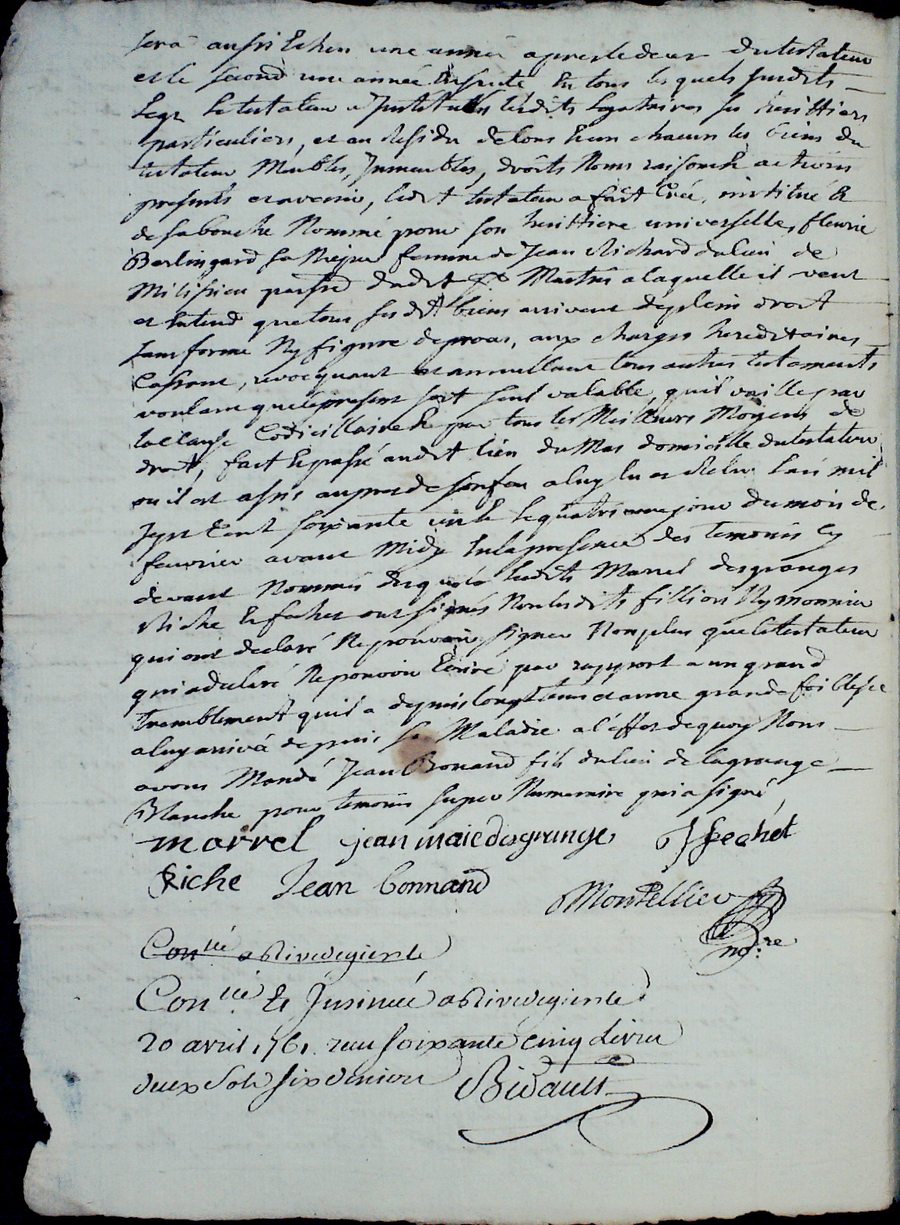 sera aussi Echeu une année apres le deces du testateur
et le second une année Ensuite En tous lesquels susdits
Legs le testateur a Jnstitués lesdits legataires ses heritiers
particuliers, et au Residu de tous et un chacun les biens du
testateur Meubles, Jmmeubles, droits Noms raisons et actions
presents et avenir, ledit testateur a fait Créé, institué &
de sa bouche Nommé pour son heritiere universelle, fleurie
Berlingard sa Niepce femme de Jean Richard du lieu de
Milissieu parsse dudit St Martin a laquelle il veut
et Entend que tous sesdits biens arrivent de plein droit
sans forme Ny figure de proces, aux charges hereditaires
Cassant, revocquant et annullant tous autres testaments
voulant que le present soit seul valable, qu'il vaille par
la clause Codicillaire & par tous les Meilleurs Moyens de
droit, fait & passé audit lieu du Mas domicille du testateur
ou il est assis aupres de son feu a luy lu et Relu Lan mil
sept cent soixante un & le quatrieme jour du mois de
feuvrier avant Midy En la presence des temoins cy
devant Nommés desquels lesdits Marrel desgranges
Riche & fechet ont signés Non lesdits filliori Ny monnier
qui ont declaré Ne pouvoir signer Non plus que le testateur
qui a declaré Ne pouvoir Ecrire par rapport a un grand
tremblement qu'il a depuis longtems et a une grande foiblesse
a luy arrivé depuis sa Maladie a l'effet de quoy Nous
avons Mandé Jean Bonand fils du lieu de la grange
Blanche pour temoin super Numeraire qui a signé
marrel jean maie desgrange Jffechet
Riche Jean bonnand
Montellier
no:re
Conllé a Rivedegier le
Conllé & Jnsinué a Rivedegier le
20 avril 1761. recu soixante cinq Livres
deux Sols six deniers Bidault